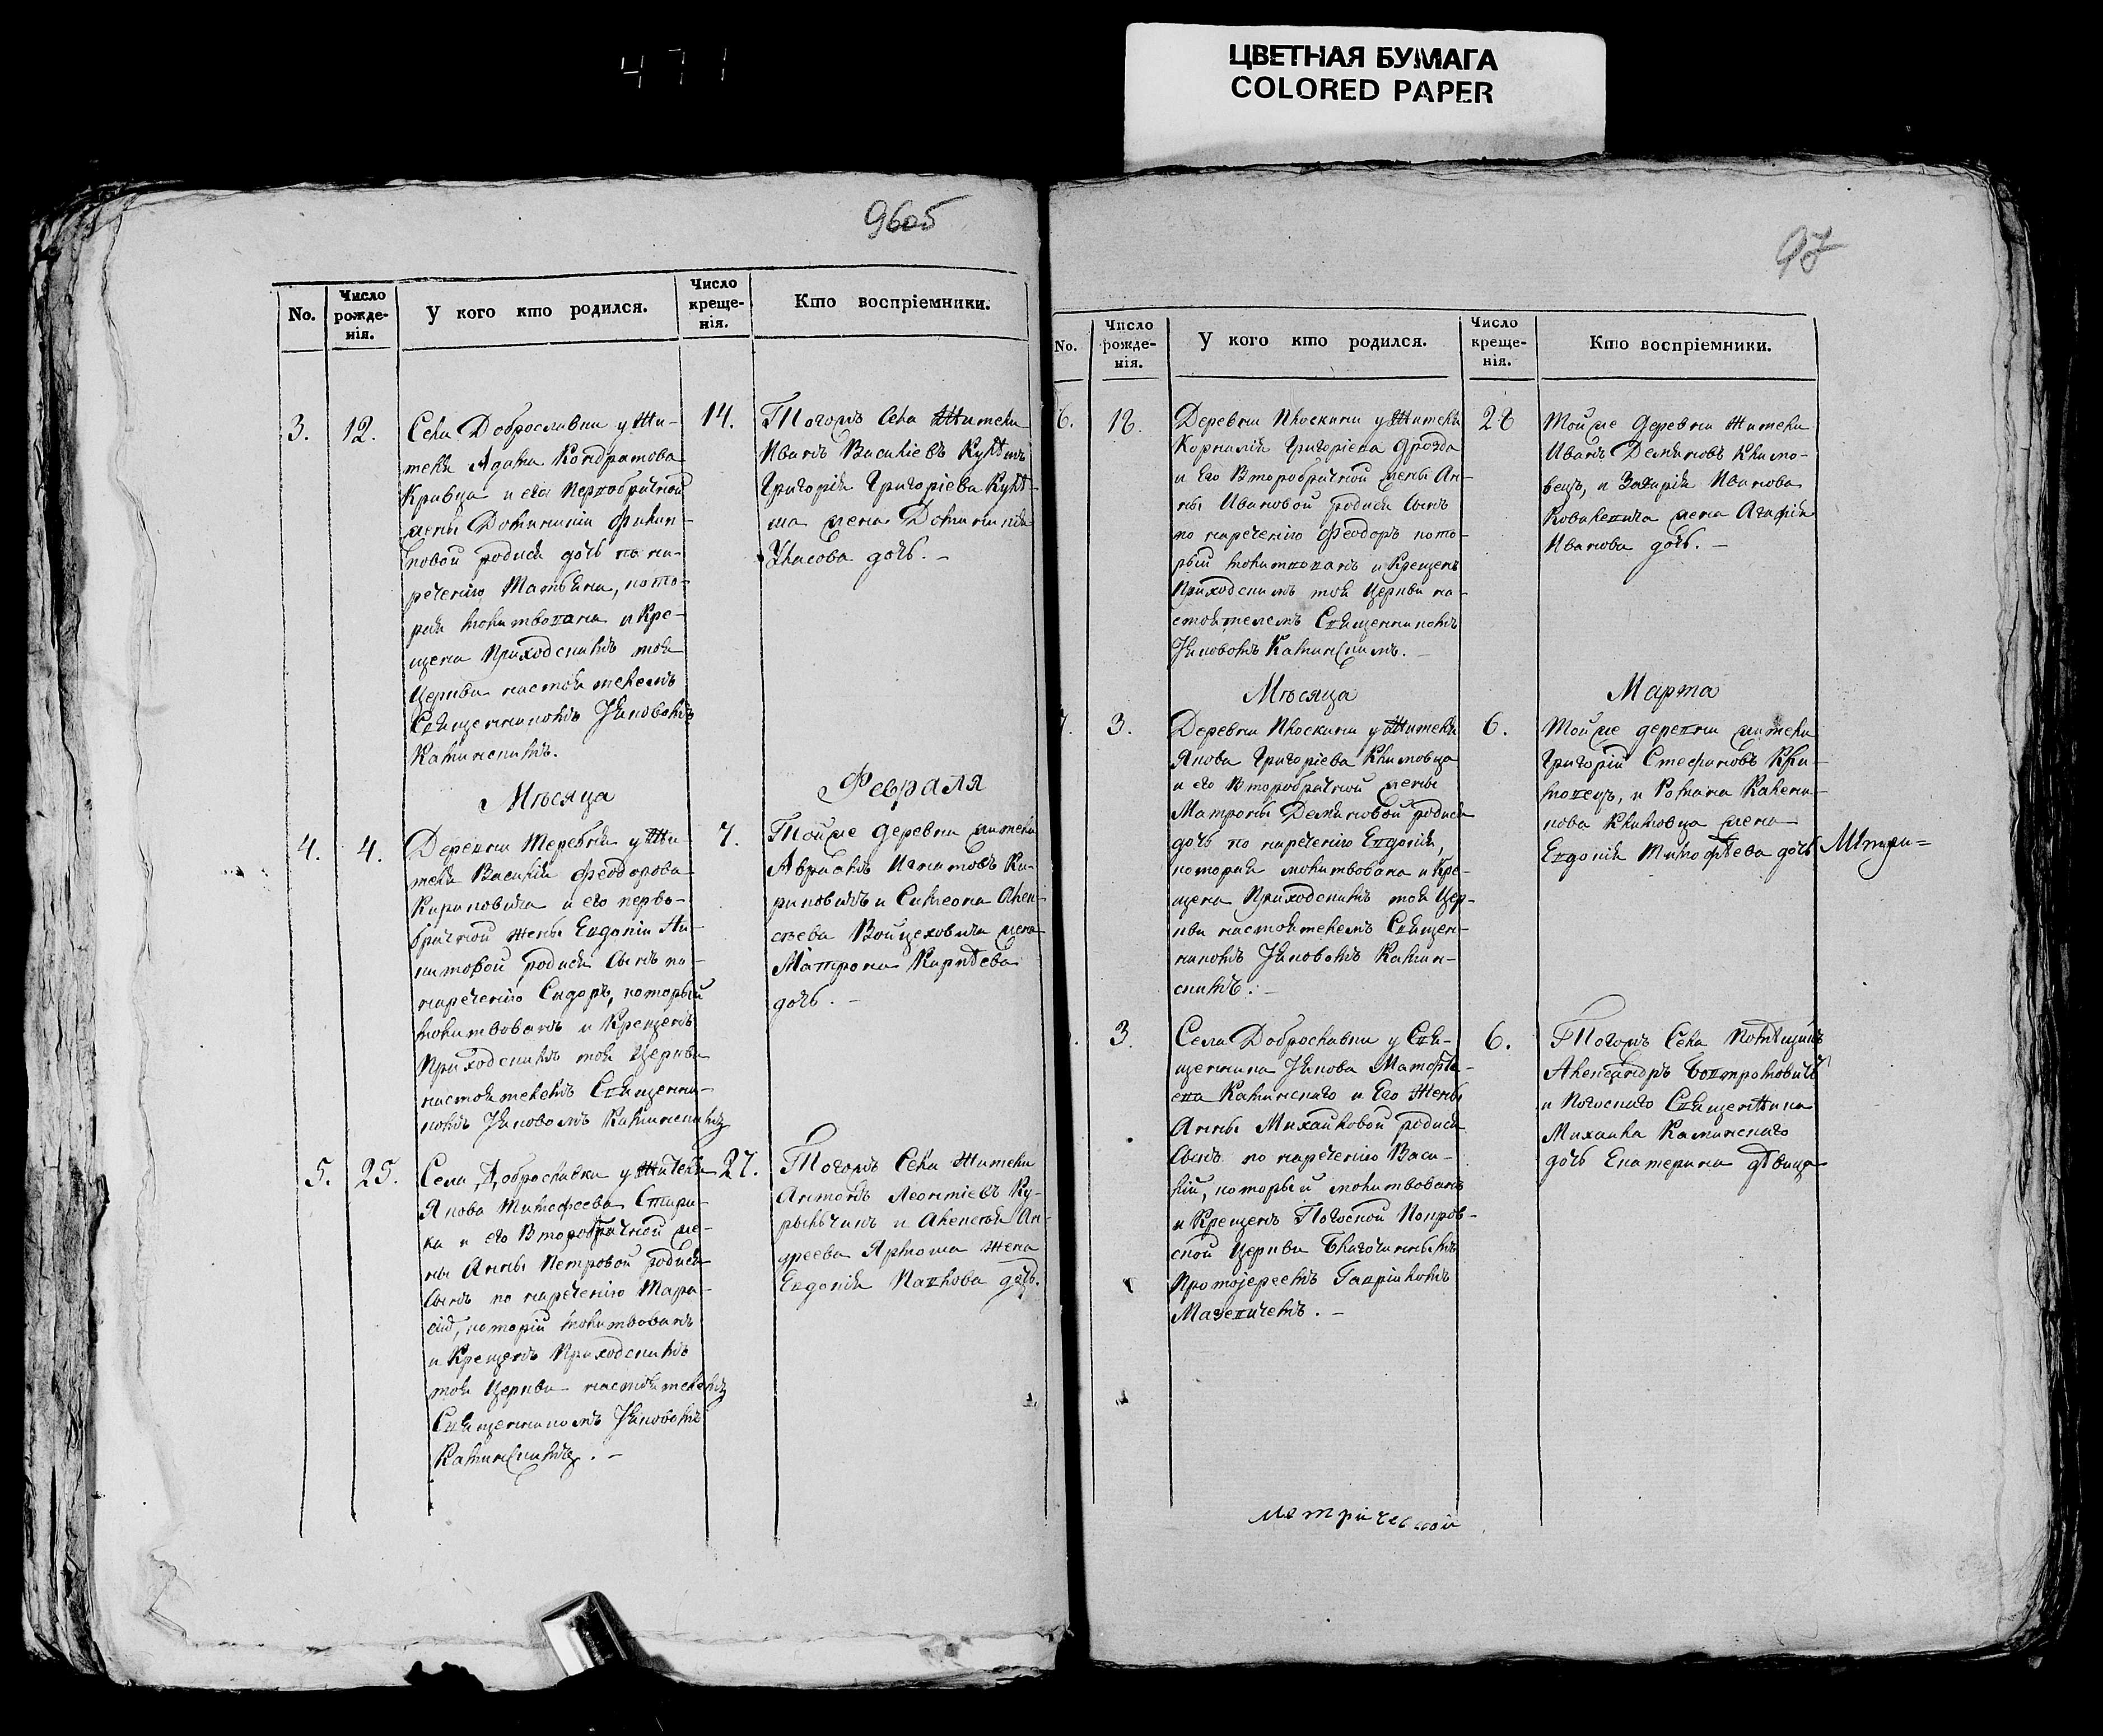 471
ЦВЕТНАЯ БУМАГА
COLORED PAPER
96об
No.
Число рожде-нія.
У кого кто родился.
Число креще-нія.
Кто воспріемники.
3.
12.
Села Доброславки у Жи-
теля Адама Кондратова
Кривца и его первобрачной
жены Домникіи Филип-
повой родися дочь по на-
речению Матрона, кото-
рая молитвована и Кре-
щена Приходскимъ тоя
Церкви настоятелемъ
Священникомъ Іяковомъ
Каминскимъ.
14.
Тогожъ Села Житель
Иванъ Василіевъ
Григорія Григоріева
жена Домникія
Власова дочь. –
Мѣсяца
Февраля
4.
4.
Деревни Теребня у Жи-
теля Василія Феодорова
Кариповича и его перво-
брачной жены Евдокіи Ни-
китовой родися Сынъ по
наречению Сидоръ, который
молитвованъ и Крещенъ
Приходскимъ тоя Церкви
настоятелемъ Священни-
комъ Іяковомъ Каминскимъ
7.
Тойже деревни житель
Авраамъ Игнатовъ Ка-
риповичъ и Симеона Алек-
сѣева Войцеховича жена
Матрона Карпѣева
дочь. –
5.
25.
Села Доброславки у Жителя
Якова Тимофеева Стари-
ка и его Второбрачной же-
ны Анны Петровой родися
Сынъ по наречению Тара-
сій, который молитвованъ
и Крещенъ Приходскимъ
тоя Церкви настоятелемъ
Священникомъ Іяковомъ
Каминскимъ. –
27.
Тогожъ Села Житель
Антонъ Леонтіевъ Ку-
рыльчикъ и Алексѣя Ан-
дреева Ярмоша жена
Евдокія Павлова дочь.
97
No.
Число рожде-нія.
У кого кто родился.
Число креще-нія.
Кто воспріемники.
6.
18.
Деревни Плоскини у Жителя
Корнилія Григоріева Дрозда
и Его Второбрачной жены Ан-
ны Ивановой родися Сынъ
по наречению Феодоръ кото-
рый молитвованъ и Крещенъ
Приходскимъ тоя Церкви на-
стоятелемъ Священникомъ
Іяковомъ Каминскимъ. –
28
Тойже деревни Житель
Иванъ Демяновъ Климо-
вецъ, и Захарія Иванова
Ковалевича жена Агафія
Иванова дочь. –
Мѣсяца
Марта
7.
3.
Деревни Плоскини у Жителя
Якова Григоріева Климовца
и его Второбрачной жены
Матроны Демяновой родися
дочь по наречению Евдокія,
которая молитвована и Кре-
щена Приходскимъ тоя Цер-
кви настоятелемъ Священ-
никомъ Іяковомъ Камин-
скимъ. –
6.
Тойже деревни житель
Григорій Стефановъ Кли-
мовецъ, и Романа Калени-
кова Климовца жена
Евдокія Тимофѣева дочь
Метри=
3.
Села Доброславки у Свя-
щенника Іякова Матфѣ-
ева Каминскаго и Его Жены
Анны Михайловой родися
Сынъ по наречению Васи-
лій, который молитвованъ
и Крещенъ Погоской Покров-
ской Церкви Благочиннымъ
Протоіереемъ Гавріиломъ
Мазевичемъ. –
6.
Тогожъ Села Помѣщикъ
Александръ
и Погоскаго Священника
Михаила Каминскаго
дочь Екатерина дѣвица
метрической